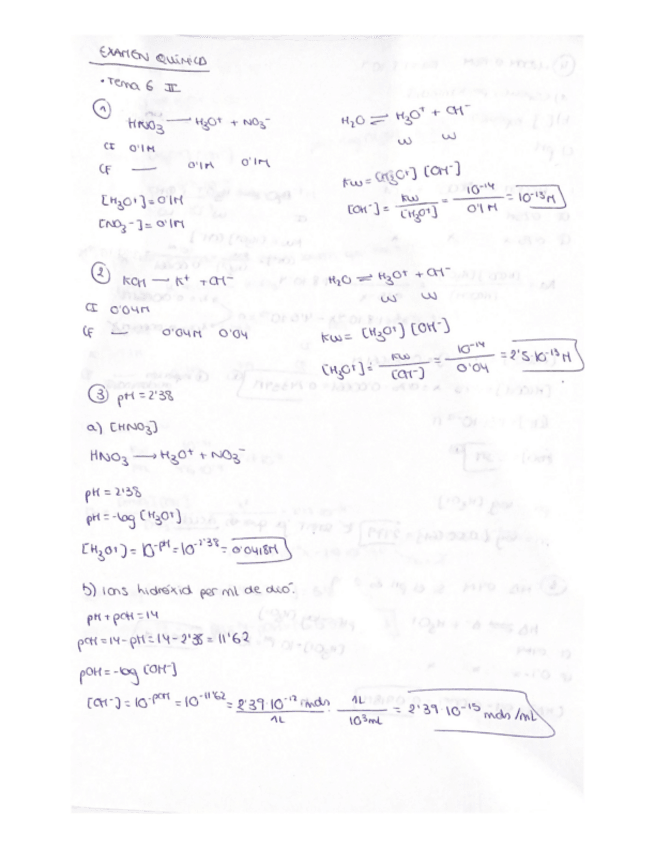 EXAMEN QUÍMICA
• Tema 6 II
①
HNO3 → H3O+ + NO3-
H2O ⇌ H3O+ + OH-
CI 0'1M
w w
CF — 0'1M 0'1M
Kw = [H3O+] [OH-]
[H3O+] = 0'1M
[OH-] = Kw / [H3O+] = 10^-14 / 0'1 M = 10^-13 M
[NO3-] = 0'1M
② KOH → K+ + OH-
H2O ⇌ H3O+ + OH-
w w
CI 0'04M
CF — 0'04M 0'04
Kw = [H3O+] [OH-]
[H3O+] = Kw / [OH-] = 10^-14 / 0'04 = 2'5·10^-13 M
③ pH = 2'38
a) [HNO3]
HNO3 → H3O+ + NO3-
pH = 2'38
pH = -log [H3O+]
[H3O+] = 10^-pH = 10^-2'38 = 0'0418M
b) Ions hidròxid per ml de dició.
pH + pOH = 14
pOH = 14 - pH = 14 - 2'38 = 11'62
pOH = -log [OH-]
[OH-] = 10^-pOH = 10^-11'62 = 2'39·10^-12 mols / 1L · 1L / 10^3 mL = 2'39·10^-15 mols/mL